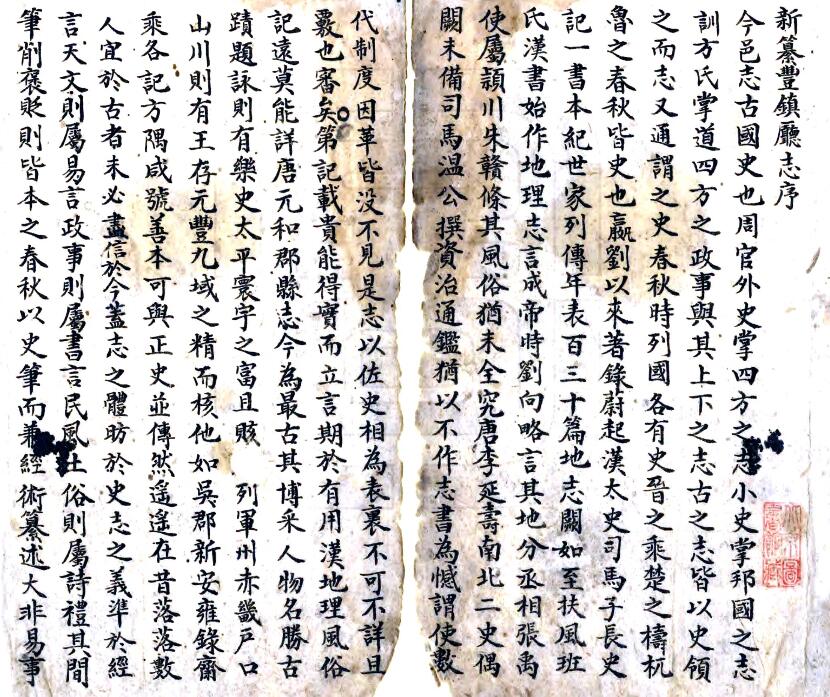 新纂豐鎮廳志序
今邑志古國史也周官外史掌四方之志小史掌邦國之志
訓方氏掌道四方之政事與其上下之志古之志皆以史領
之而志又通謂之史春秋時列國各有史晉之乘楚之檮杌
魯之春秋皆史也嬴劉以來著錄蔚起漢太史司馬子長史
記一書本紀世家列傳年表百三十篇地志闕如至扶風班
氏漢書始作地理志言成帝時劉向略言其地分丞相張禹
使屬潁川朱贛條其風俗猶未全究唐李延壽南北二史偶
闕未備司馬溫公撰資治通鑑猶以不作志書為憾謂使數
代制度因革皆没不見是志以佐史相為表裏不可不詳且
覈也審矣第記載貴能得實而立言期於有用漢地理風俗
記遠莫能詳唐元和郡縣志今為最古其博采人物名勝古
蹟題詠則有樂史太平寰宇之富且賅列軍州赤畿戶口
山川則有王存元豐九域之精而核他如吳郡新安雍錄齋
乘各記方隅咸號善本可與正史並傳然遥遥在昔落落數
人宜於古者未必盡信於今蓋志之體昉於史志之義準於經
言天文則屬易言政事則屬書言民風土俗則屬詩禮其間
筆削褒貶則皆本之春秋以史筆而兼經術纂述大非易事